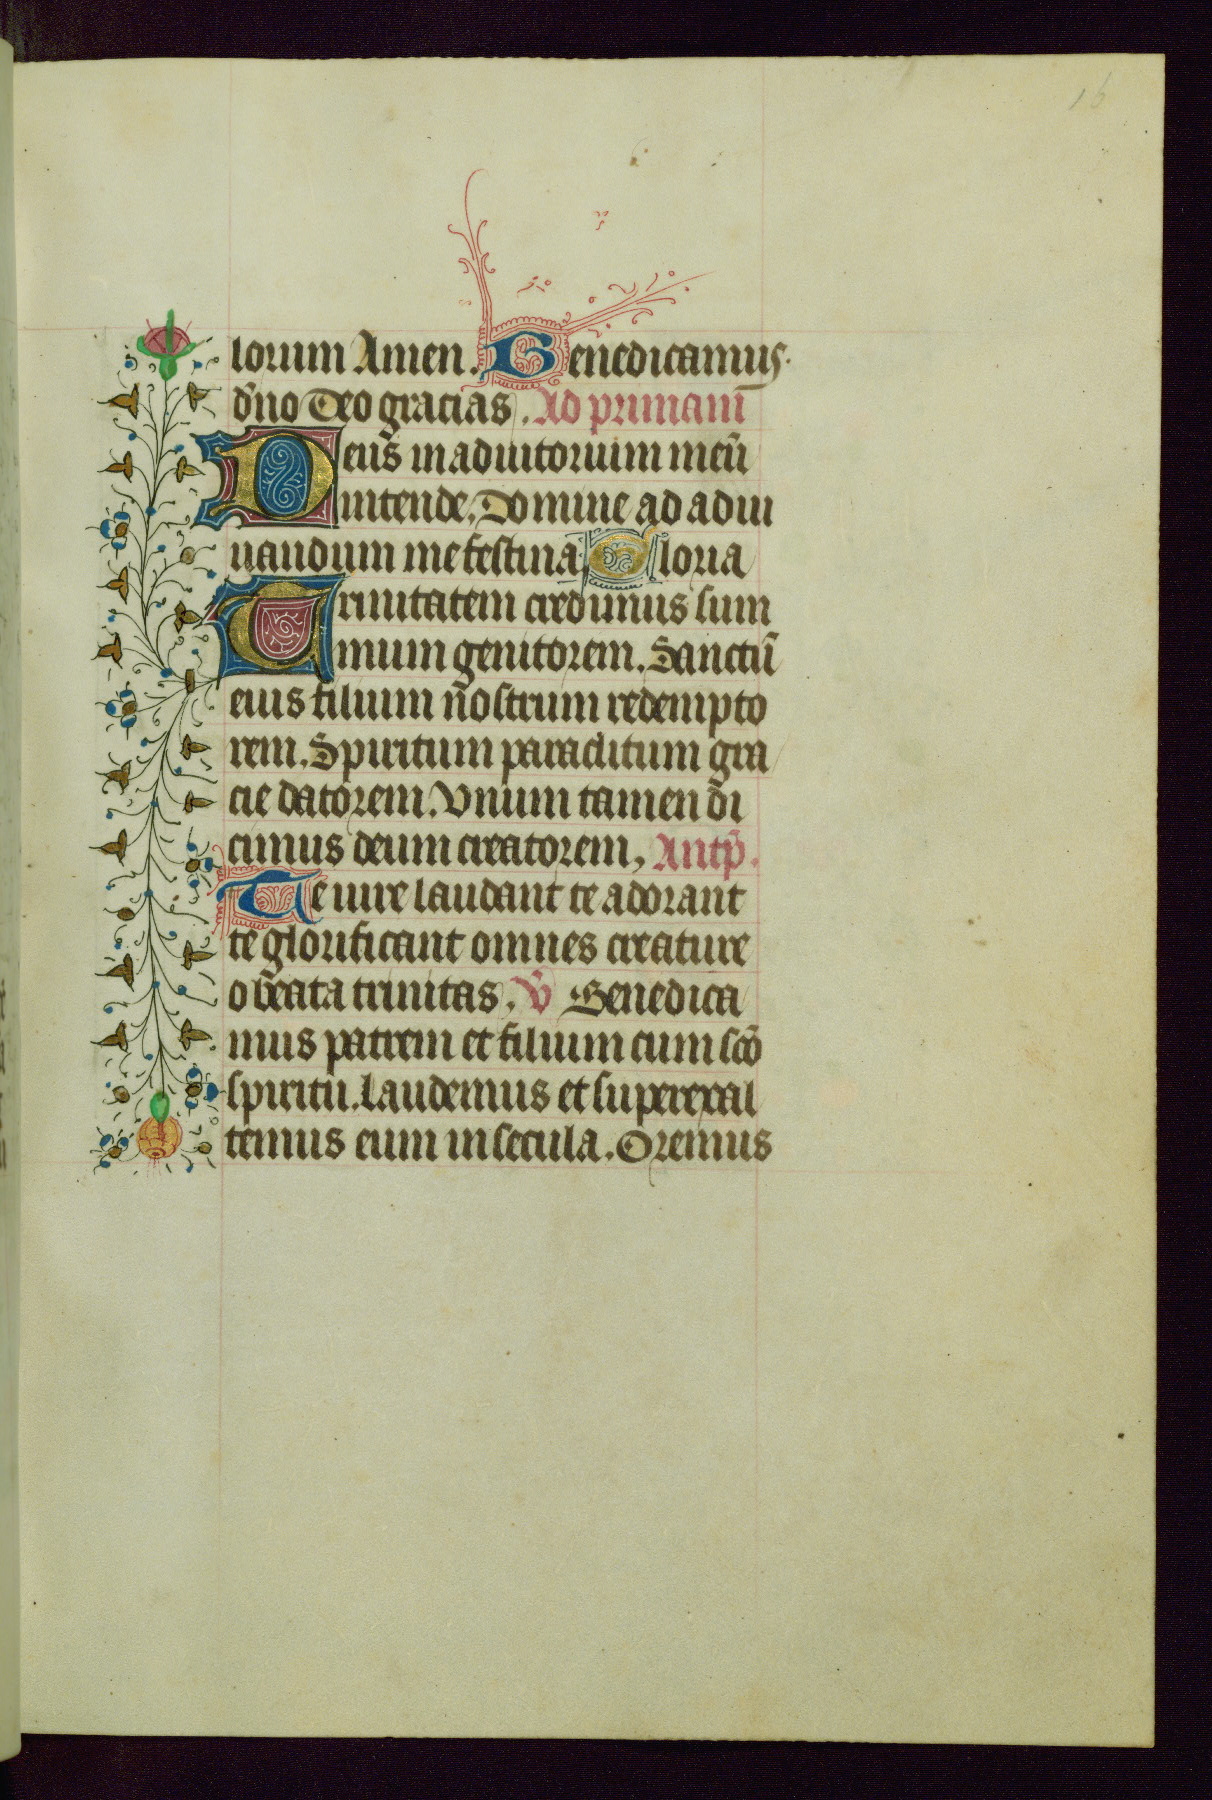 16
lorum Amen. Benedicamus
dn̄o Deo gracias. Ad primam
Deus in adiutorium meū
intende. Domine ad adiu
uandum me festina Gloria
Trinitatem credimus sum
mum genitorem. Sanctū
eius filium nostrum redempto
rem. Spiritum paraclitum gra
cie datorem. Vnum tamen di
cimus deum creatorem, Antp̄.
Te iure laudant te adorant
te glorificant omnes creature
o beata trinitas. V̄ Benedica
mus patrem et filium cum scō
spiritu. Laudemus et superexal
temus eum in secula. Oremus